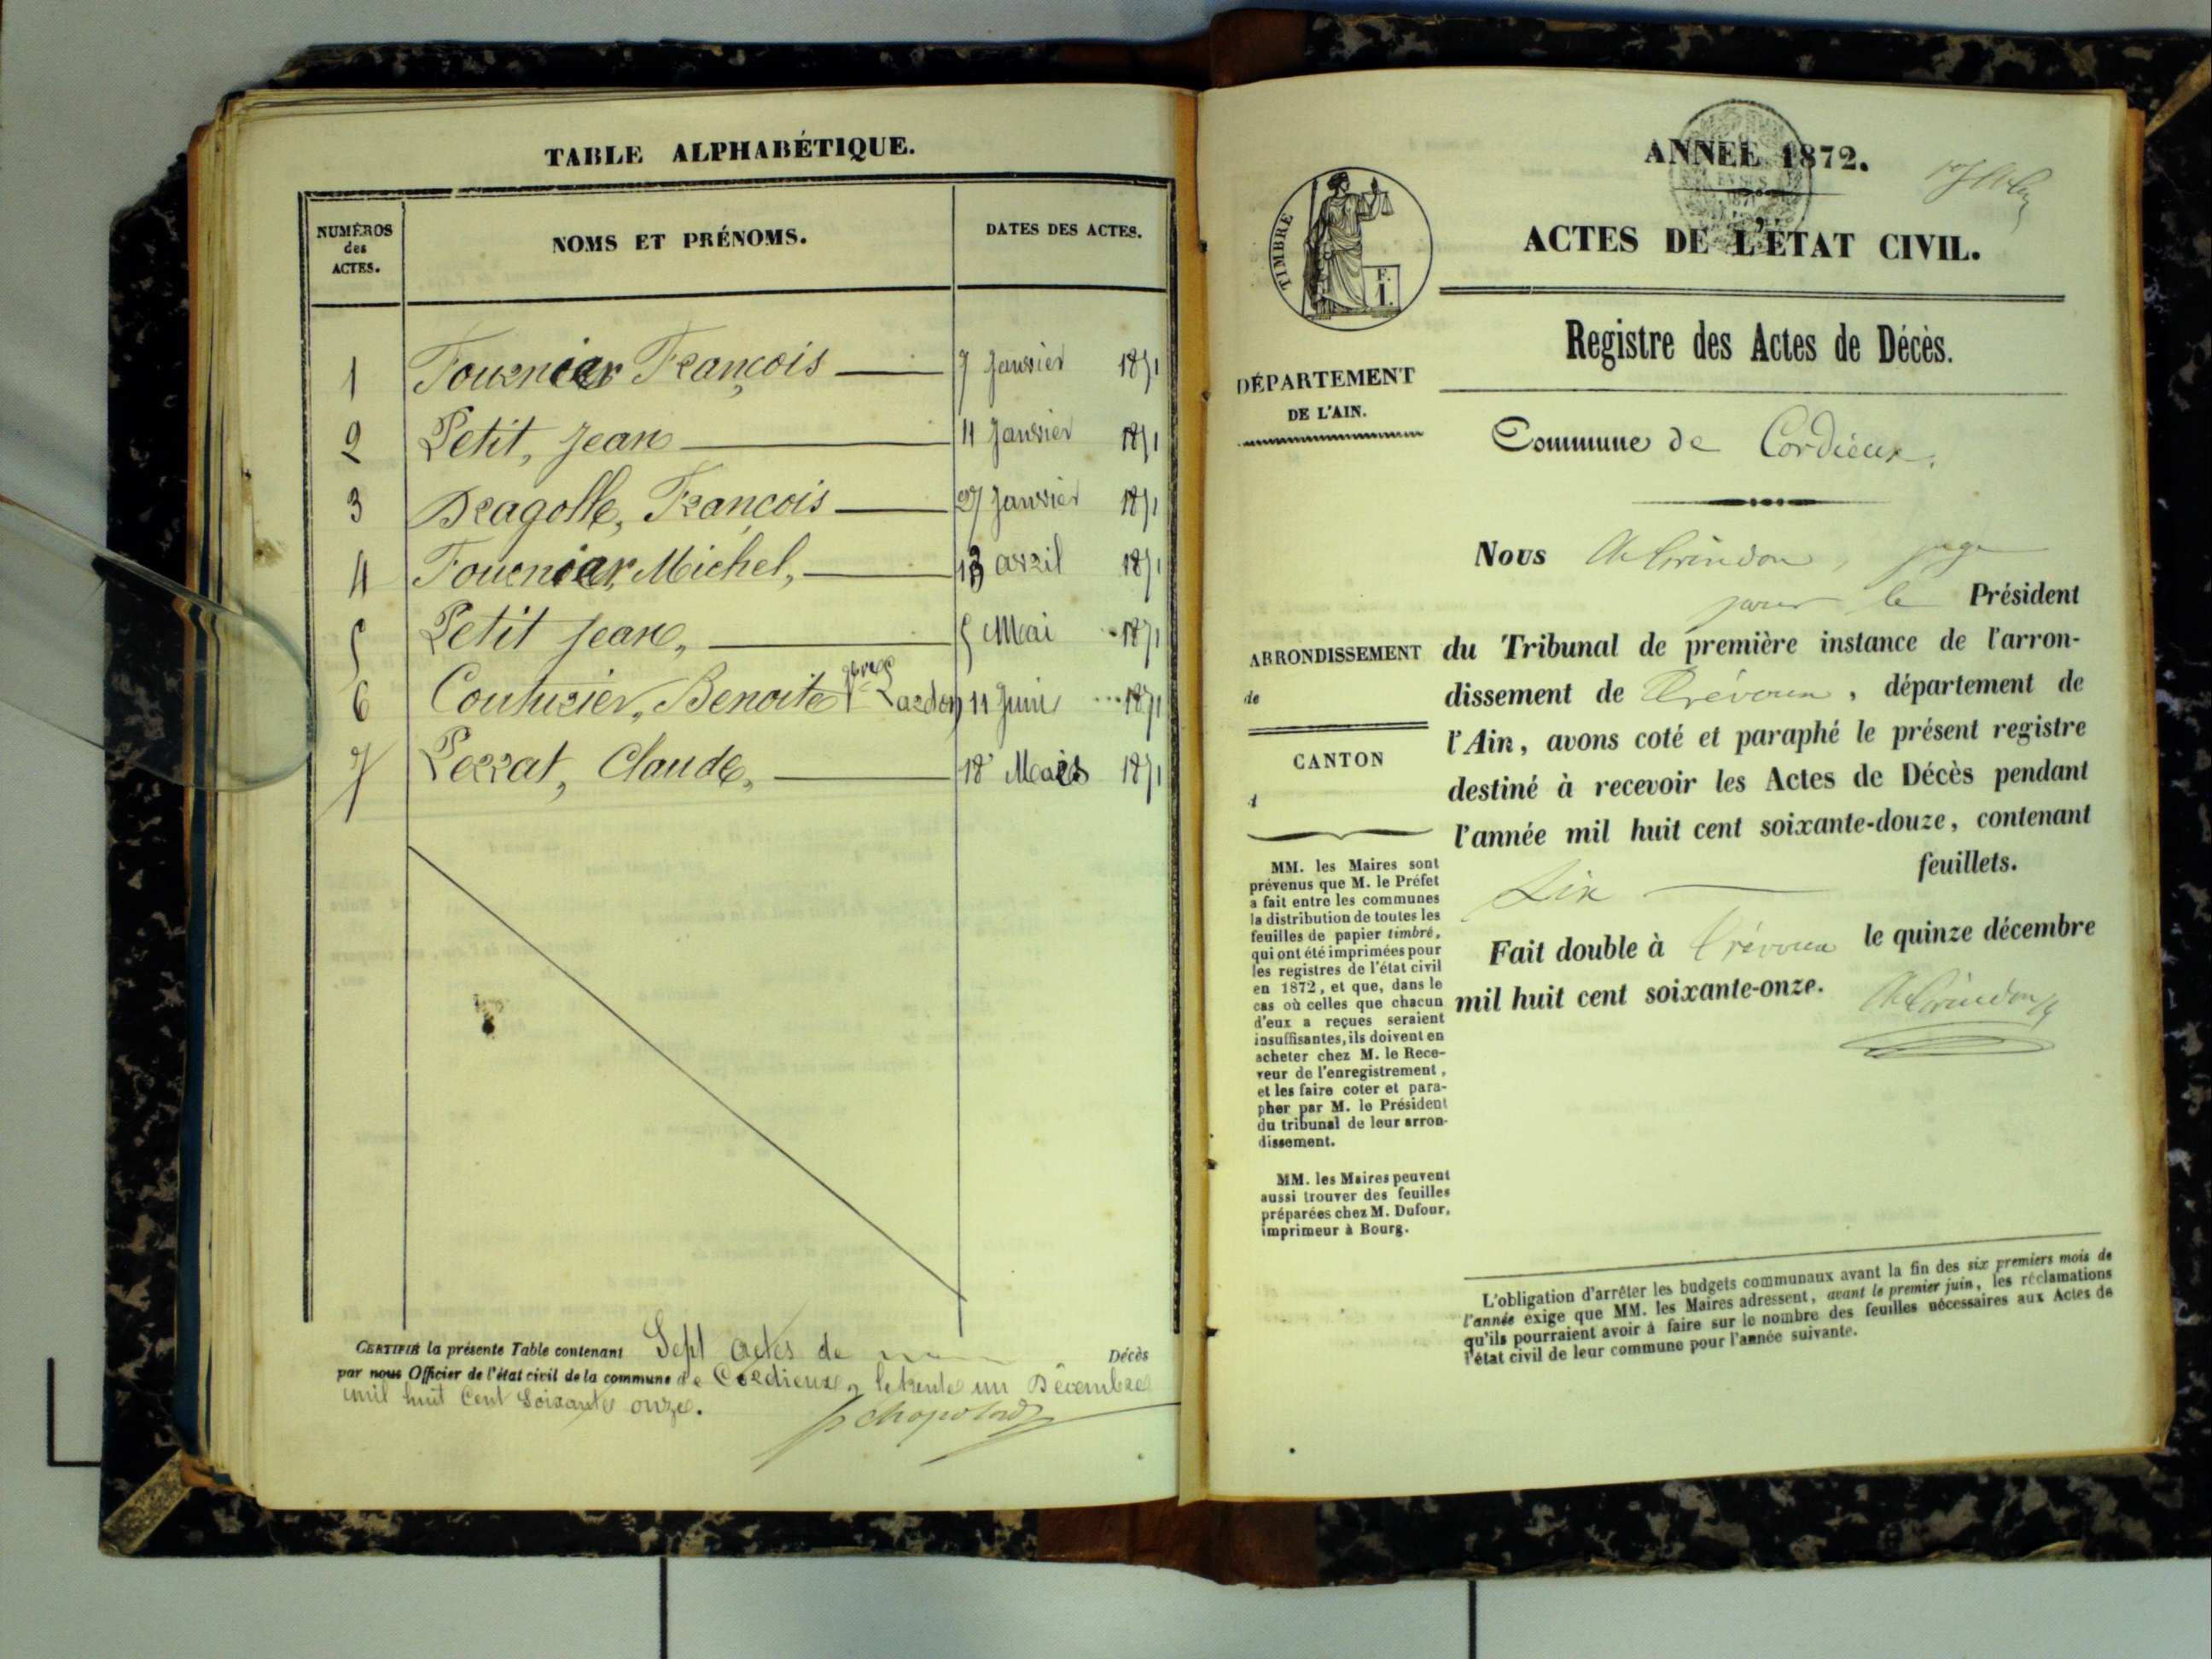 TABLE ALPHABÉTIQUE.
NUMÉROS
des
ACTES.
NOMS ET PRÉNOMS.
DATES DES ACTES.
1 Fournier François 7 Janvier 1871
2 Petit, Jean 11 Janvier 1871
3 Bragolle, François 27 Janvier 1871
4 Fournier, Michel, 13 avril 1871
5 Petit Jean, 5 Mai 1871
6 Couturier, Benoite Lardon 11 Juin 1871
7 Perrat, Claude, 18 Mars 1871
CERTIFIÉ la présente Table contenant Sept actes de Décès
par nous Officier de l'état civil de la commune de Cordieux, le trente un Décembre
mil huit Cent Soixante onze.
ANNÉE 1872.
ACTES DE L'ÉTAT CIVIL.
TIMBRE
Registre des Actes de Décès.
DÉPARTEMENT
DE L'AIN.
Commune de Cordieux.
Nous juge
pour le Président
ARRONDISSEMENT
de
CANTON
d
du Tribunal de première instance de l'arron-
dissement de Trévoux, département de
l'Ain, avons coté et paraphé le présent registre
destiné à recevoir les Actes de Décès pendant
l'année mil huit cent soixante-douze, contenant
feuillets.
Fait double à Trévoux le quinze décembre
mil huit cent soixante-onze.
MM. les Maires sont
prévenus que M. le Préfet
a fait entre les communes
la distribution de toutes les
feuilles de papier timbré,
qui ont été imprimées pour
les registres de l'état civil
en 1872, et que, dans le
cas où celles que chacun
d'eux a reçues seraient
insuffisantes, ils doivent en
acheter chez M. le Rece-
veur de l'enregistrement,
et les faire coter et para-
pher par M. le Président
du tribunal de leur arron-
dissement.
MM. les Maires peuvent
aussi trouver des feuilles
préparées chez M. Dufour,
imprimeur à Bourg.
L'obligation d'arrêter les budgets communaux avant la fin des six premiers mois de
l'année exige que MM. les Maires adressent, avant le premier juin, les réclamations
qu'ils pourraient avoir à faire sur le nombre des feuilles nécessaires aux Actes de
l'état civil de leur commune pour l'année suivante.